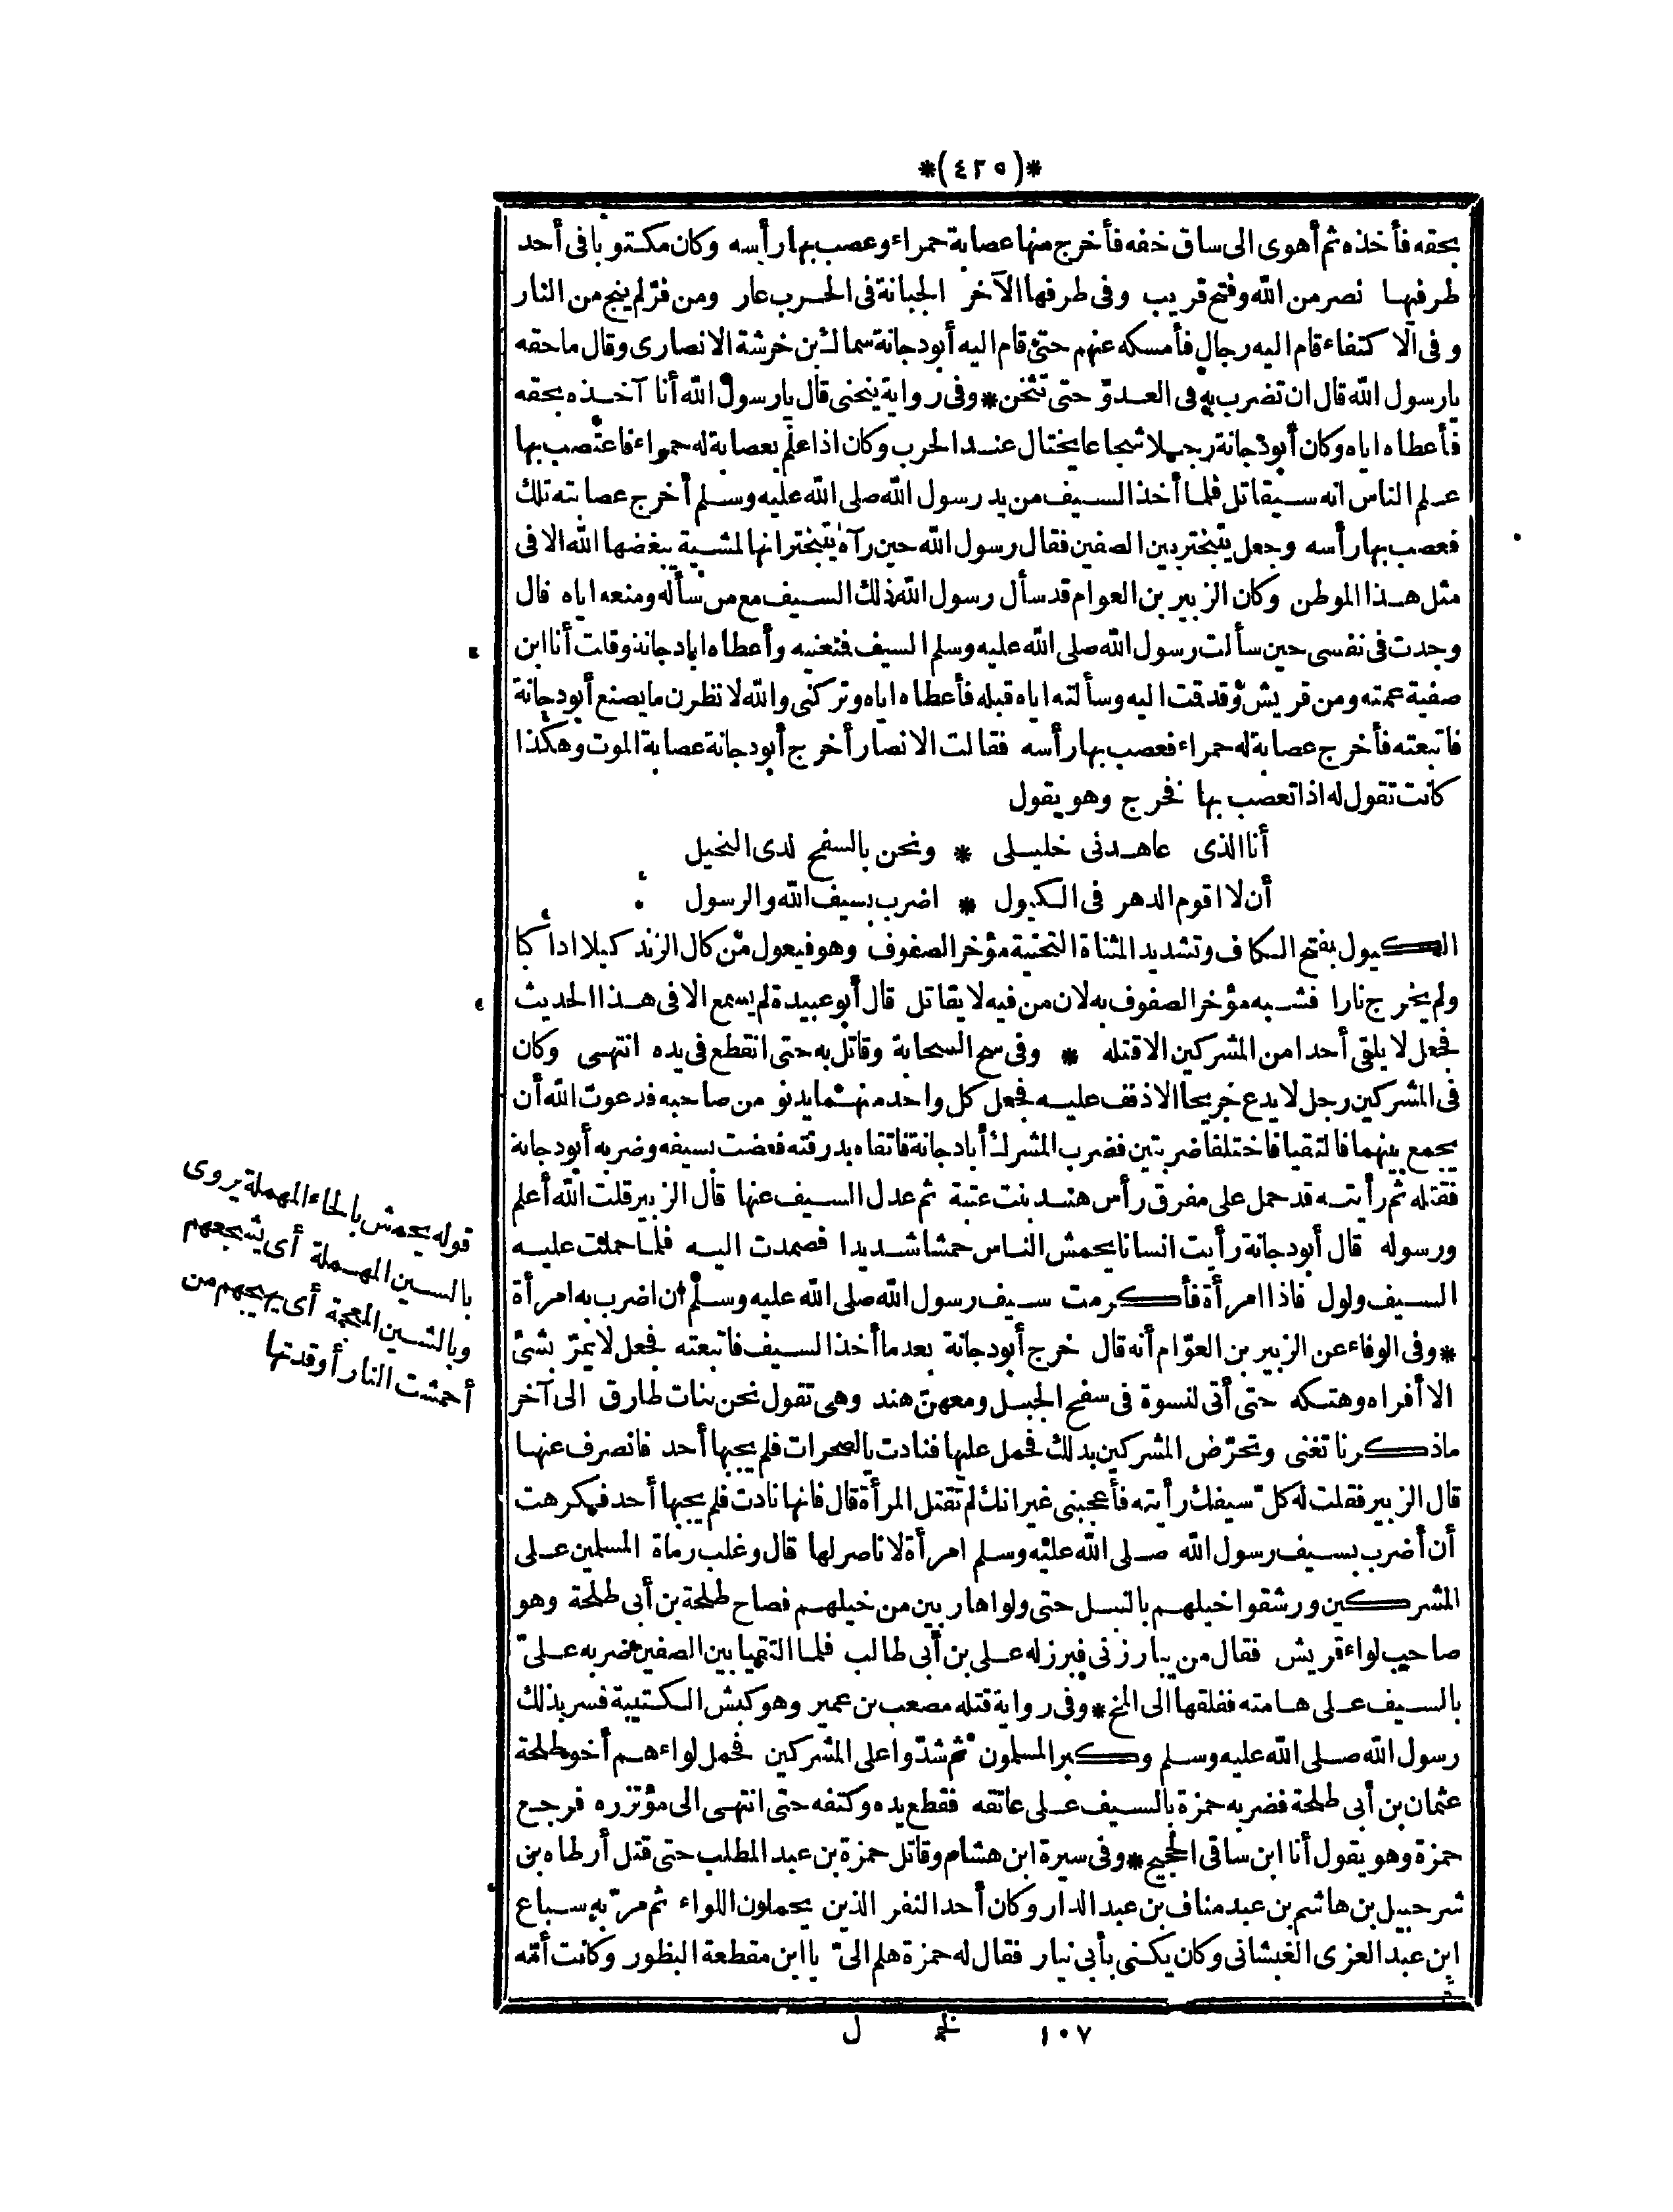 *(٤٢٥)*
بحقه فأخذه ثم أهوى الى ساق خفه فأخرج منها عصابة حمراء وعصب بها رأسه وكان مكتوبا فى أحد
طرفيها نصر من الله وفتح قريب وفى طرفها الآخر الجبانة فى الحرب عار ومن فرّ لم ينج من النار
وفى الاكتفاء قام اليه رجال فأمسكه عنهم حتى قام اليه أبودجانة سماك بن خرشة الانصارى وقال ماحقه
يارسول الله قال ان تضرب به فى العدوّ حتى تثخن * وفى رواية ينحنى قال يارسول الله أنا آخذه بحقه
فأعطاه اياه وكان أبودجانة رجلا شجاعا يختال عند الحرب وكان اذا علم بعصابة له حمراء فاعتصب بها
علم الناس انه سيقاتل فلما أخذ السيف من يد رسول الله صلى الله عليه وسلم أخرج عصابته تلك
فعصب بها رأسه وجعل يتبختر بين الصفين فقال رسول الله حين رآه يتبختر انها لمشية يبغضها الله الا فى
مثل هذا الموطن وكان الزبير بن العوام قد سأل رسول الله ذلك السيف مع من سأله ومنعه اياه قال
وجدت فى نفسى حين سألت رسول الله صلى الله عليه وسلم السيف فمنعنيه وأعطاه ابادجانة وقلت أنا ابن
صفية عمته ومن قريش وقد قمت اليه وسألته اياه قبله فأعطاه اياه وتركنى والله لانظرن ما يصنع أبودجانة
فاتبعته فأخرج عصابة له حمراء فعصب بها رأسه فقالت الانصار أخرج أبودجانة عصابة الموت وهكذا
كانت تقول له اذا تعصب بها فخرج وهو يقول
أنا الذى عاهدنى خليلى * ونحن بالسفح لدى النخيل
أن لا اقوم الدهر فى الكيول * اضرب بسيف الله والرسول
الكيول بفتح الكاف وتشديد المثناة التحتية مؤخر الصفوف وهو فيعول من كال الزند كيلا اذا كبا
ولم يخرج نارا فشبه مؤخر الصفوف به لان من فيه لا يقاتل قال أبوعبيدة لم يسمع الا فى هذا الحديث
فجعل لا يلقى أحدا من المشركين الا قتله * وفى سح السحابة وقاتل به حتى انقطع فى يده انتهى وكان
فى المشركين رجل لا يدع جريحا الا ذفف عليه فجعل كل واحد منهما يدنو من صاحبه فدعوت الله أن
يجمع بينهما فالتقيا فاختلفا ضربتين فضرب المشرك أبادجانة فاتقاه بدرقته فعضت بسيفه وضربه أبودجانة
فقتله ثم رأيته قد حمل على مفرق رأس هند بنت عتبة ثم عدل السيف عنها قال الزبير قلت الله أعلم
ورسوله قال أبودجانة رأيت انسانا يحمش الناس حمشا شديدا فصمدت اليه فلما حملت عليه
السيف ولول فاذا امرأة فأكرمت سيف رسول الله صلى الله عليه وسلم أن اضرب به امرأة
* وفى الوفاء عن الزبير بن العوّام أنه قال خرج أبودجانة بعد ما أخذ السيف فاتبعته فجعل لا يمرّ بشئ
الا أفراه وهتكه حتى أتى لنسوة فى سفح الجبل ومعهن هند وهى تقول نحن بنات طارق الى آخر
ماذكرنا تغنى وتحرّض المشركين بذلك فحمل عليها فنادت بالصحرات فلم يجبها أحد فانصرف عنها
قال الزبير فقلت له كلّ سيفك رأيته فأعجبنى غير انك لم تقتل المرأة قال فانها نادت فلم يجبها أحد فكرهت
أن أضرب بسيف رسول الله صلى الله عليه وسلم امرأة لا ناصر لها قال وغلب رماة المسلمين على
المشركين ورشقوا خيلهم بالنبل حتى ولوا هاربين من خيلهم فصاح طلحة بن أبى طلحة وهو
صاحب لواء قريش فقال من يبارزنى فبرز له على بن أبى طالب فلما التقيا بين الصفين ضربه علىّ
بالسيف على هامته ففلقها الى المخ * وفى رواية قتله مصعب بن عمير وهو كبش الكتيبة فسر بذلك
رسول الله صلى الله عليه وسلم وكبر المسلمون ثم شدّوا على المشركين فحمل لواءهم أخو طلحة
عثمان بن أبى طلحة فضربه حمزة بالسيف على عاتقه فقطع يده وكتفه حتى انتهى الى مؤتزره فرجع
حمزة وهو يقول أنا ابن ساقى الحجيج * وفى سيرة ابن هشام وقاتل حمزة بن عبد المطلب حتى قتل أرطاه بن
شرحبيل بن هاشم بن عبد مناف بن عبد الدار وكان أحد النفر الذين يحملون اللواء ثم مرّ به سباع
ابن عبد العزى الغبشانى وكان يكنى بأبى نيار فقال له حمزة هلم الىّ يا ابن مقطعة البظور وكانت أمّه
قوله يحمش بالحاء المهملة يروى
بالسين المهملة أى يشجعهم
وبالشين المعجمة أى يهيجهم من
أحمشت النار أوقدتها
١٠٧ خم ل